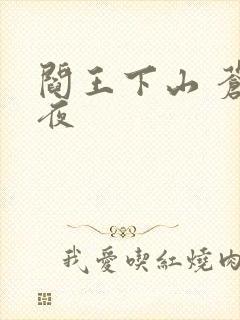 閻王下山 蒼
夜
我愛喫紅燒肉